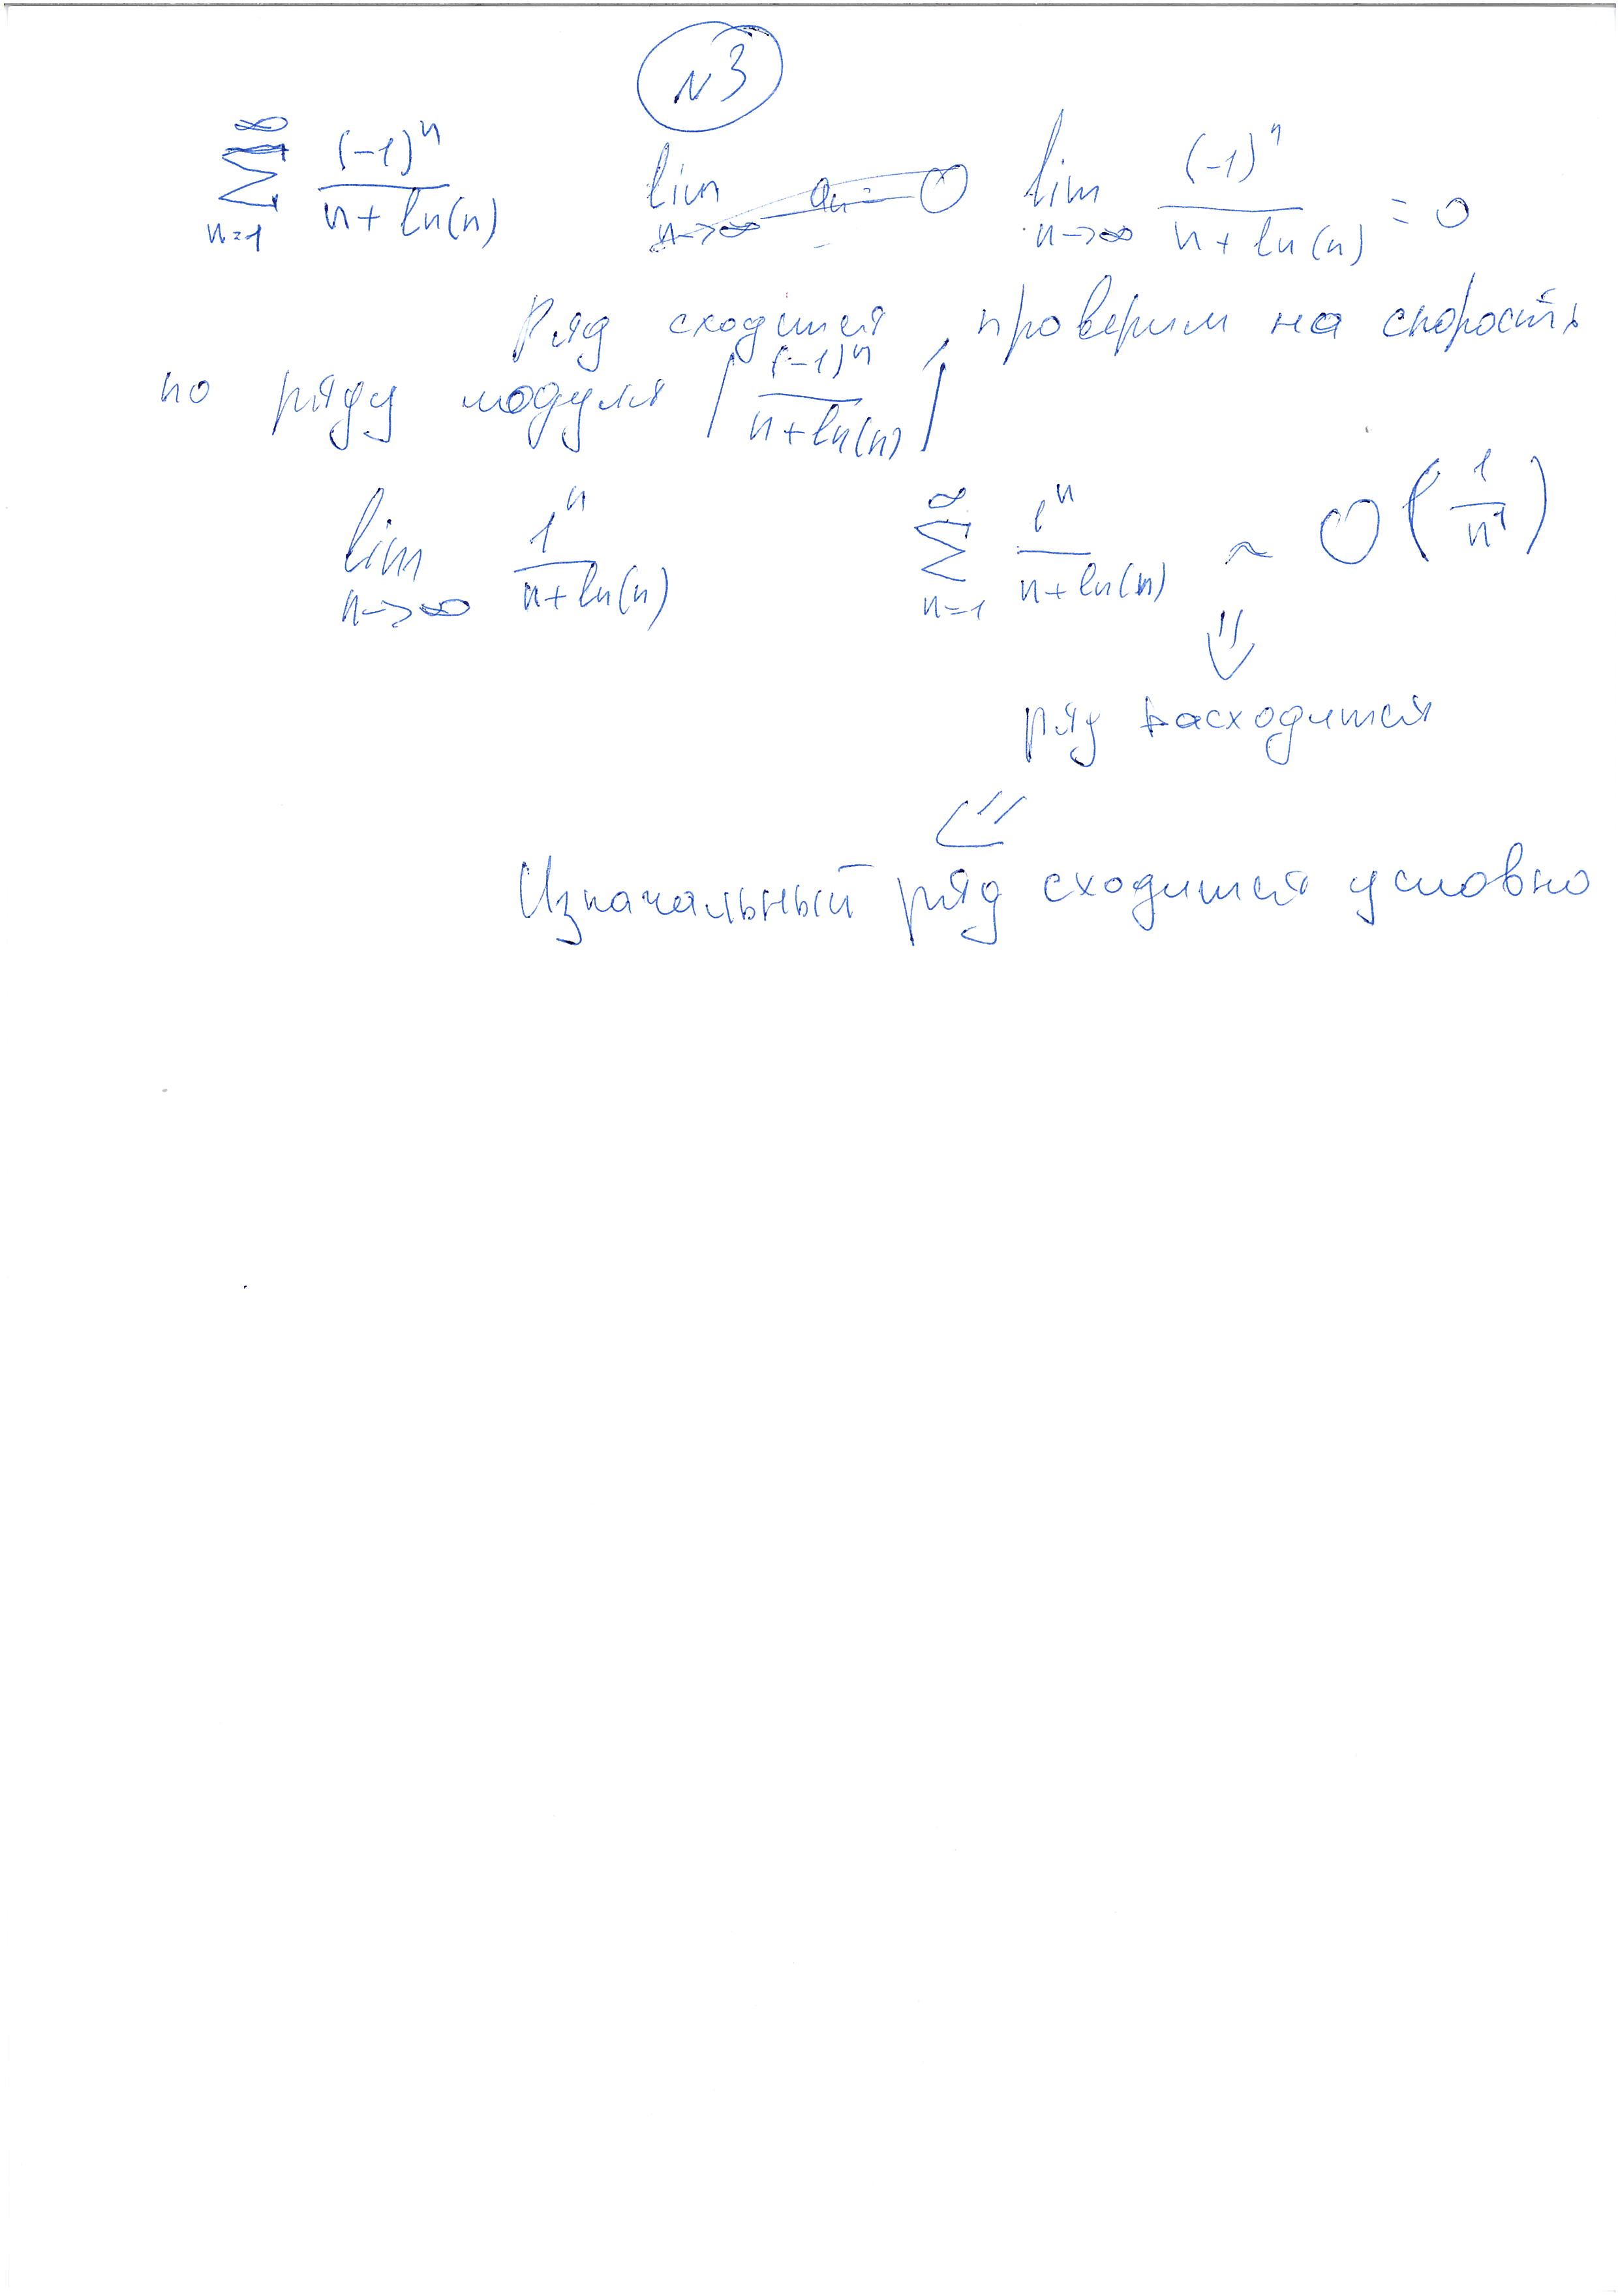 N3
∞ ∑ n=1 (-1)^n / (n + ln(n)) lim n→∞ a_n = 0 lim n→∞ (-1)^n / (n + ln(n)) = 0
Ряд сходится, проверим на скорость
по ряду модуля |(-1)^n / (n + ln(n))|
lim n→∞ 1^n / (n + ln(n)) ∞ ∑ n=1 1^n / (n + ln(n)) ~ O(1 / n^1)
⇓
ряд расходится
⇙
Изначальный ряд сходится условно